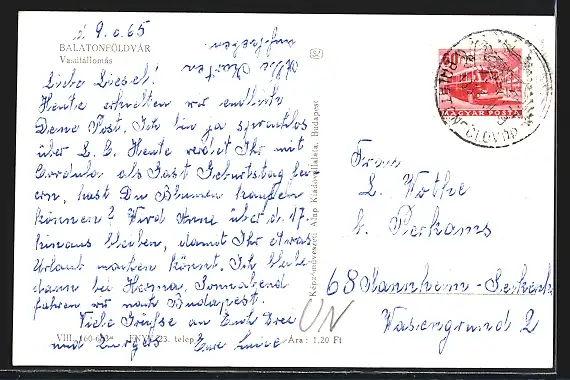 9.6.65
BALATONFÖLDVÁR
Vasútállomás
Alle Karten
aufheben
Liebe Liesel!
Heute erhielten wir endlich
Deine Post. Ich bin ja sprachlos
über Heute werdet Ihr mit
Cordula als Gast Geburtstag fei-
ern, hast Du Blumen kaufen
können? Wird Anne über d. 17.
hinaus bleiben, damit Ihr etwas
Urlaub machen könnt. Ich bleibe
dann bei Sonnabend
fahren wir nach Budapest.
Viele Grüsse an
und Eure Luise
VIII. telep
Ára: 1,20 Ft
Képzőművészeti Alap Kiadóvállalata, Budapest
MAGYAR POSTA
Frau
L. Wothe
b. Perkams
68 Mannheim-
Wasengrund 2